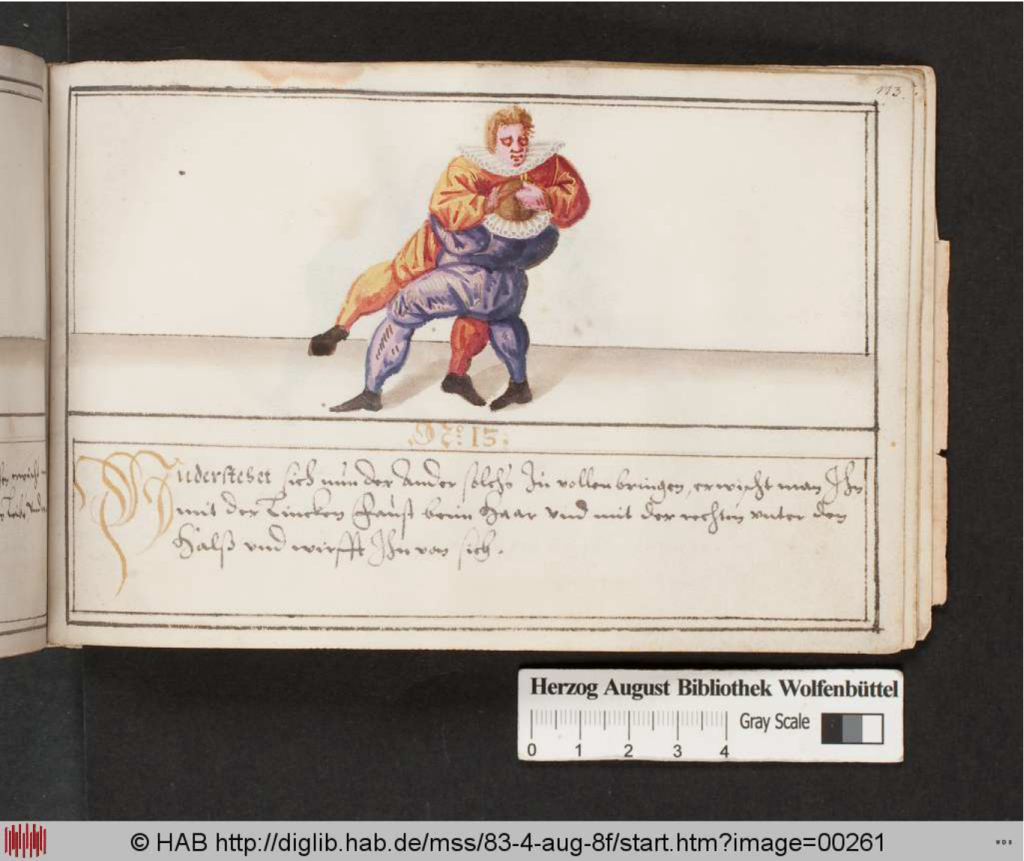 113.
No: 15:
Understehet sich nun der Ander solchs zu vollenbringen, erwischt man Ihn
mit der Lincken Faust beim Haar und mit der rechten unter den
Halß und wirfft Ihn von sich.
Herzog August Bibliothek Wolfenbüttel
Gray Scale
0 1 2 3 4
© HAB http://diglib.hab.de/mss/83-4-aug-8f/start.htm?image=00261